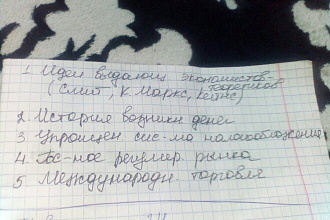 1 Идеи выдающ экономистов-
теоретиков
(Смит, К Маркс, Кейнс)
2. История возникн денег
3 Упрощен сис-ма налогообложения
4 Гос-ное регулир. рынка
5 Международн. торговля